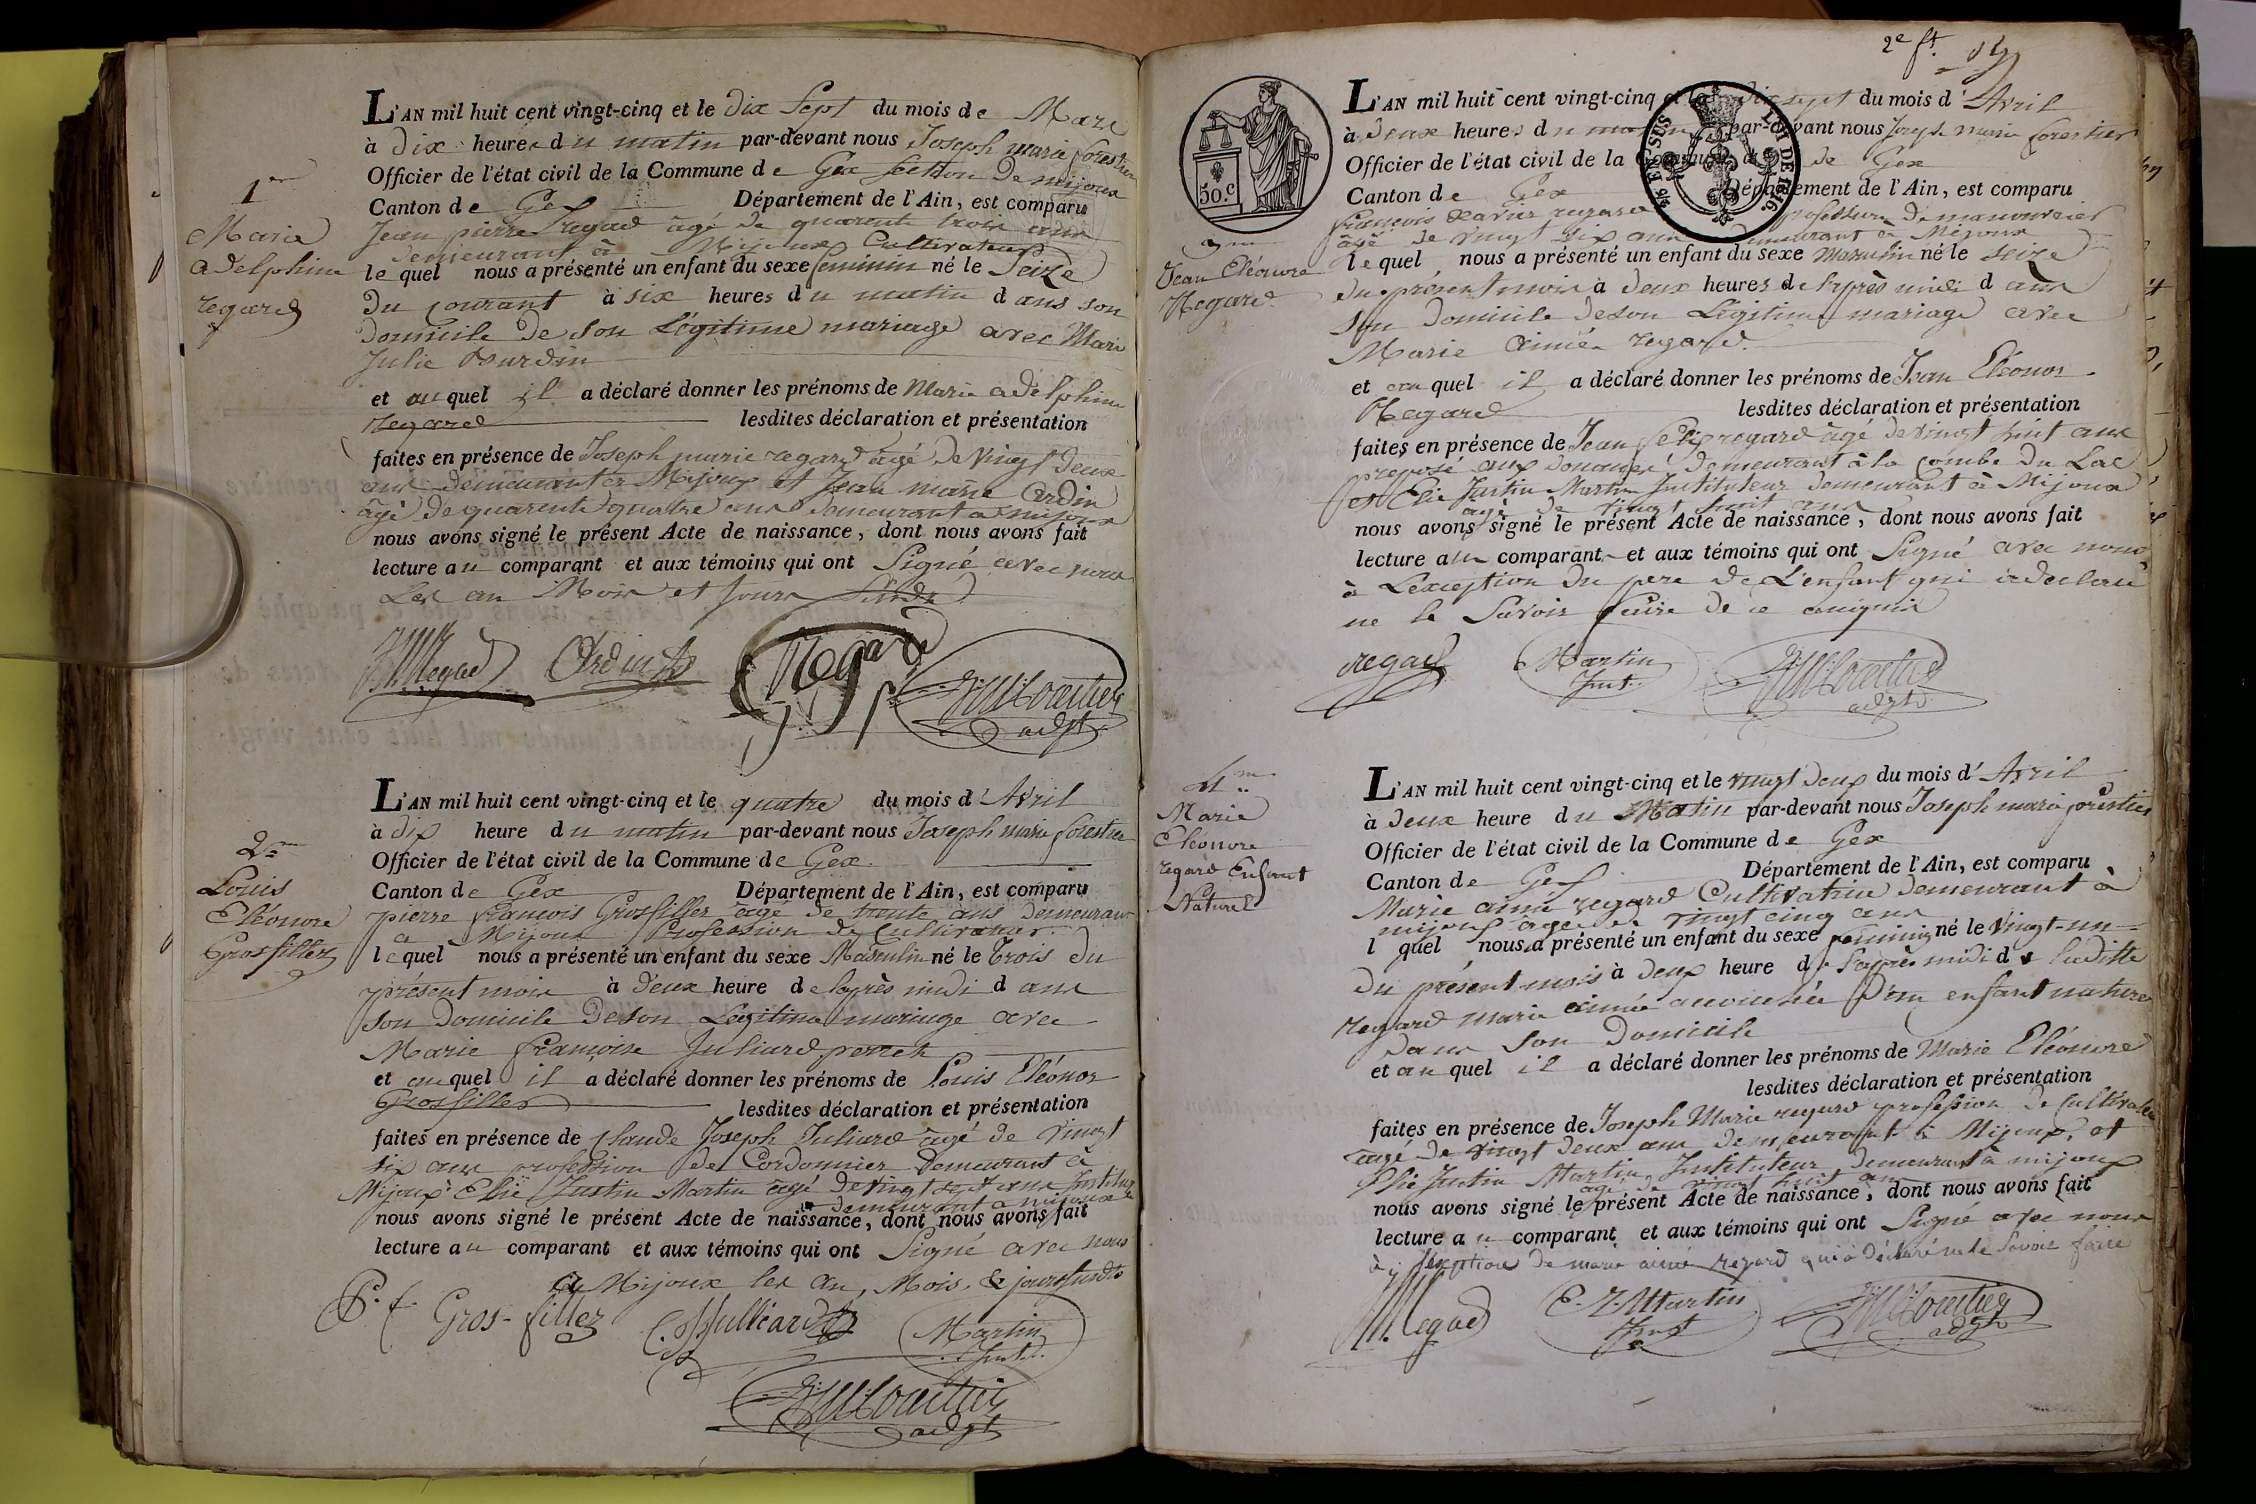 1er
Marie
adelphine
regard
L'AN mil huit cent vingt-cinq et le dix Sept du mois de Mars
à dix heures du matin par-devant nous Joseph marie forestier
Officier de l'état civil de la Commune de Gex Section de mijoux
Canton de Gex Département de l'Ain, est comparu
Jean pierre regard âgé de quarente trois ans
demeurant à Mijoux Cultivateur
le quel nous a présenté un enfant du sexe feminin né le Seize
du courant à six heures du matin dans son
domicile de son Légitime mariage avec Marie
Julie Burdin
et auquel il a déclaré donner les prénoms de Marie adelphine
regard lesdites déclaration et présentation
faites en présence de Joseph marie regard âgé de vingt deux
ans demeurant à Mijoux et Jean marie Cordin
âgé de quarente quatre ans demeurant a mijoux
nous avons signé le présent Acte de naissance, dont nous avons fait
lecture au comparant et aux témoins qui ont Signé avec nous
Les an Mois et Jours Susdit
JM Regad Regard
adjt
2me
Louis
Eléonore
Grosfillez
L'AN mil huit cent vingt-cinq et le quatre du mois d'Avril
à dix heure du matin par-devant nous Joseph marie forestier
Officier de l'état civil de la Commune de Gex
Canton de Gex Département de l'Ain, est comparu
pierre francois Grosfillez âgé de trente ans demeurant
a Mijoux Profession de Cultivateur
lequel nous a présenté un enfant du sexe Masculin né le Trois du
présent mois à deux heure de laprès midi dans
son Domicile de son Légitime mariage avec
Marie françoise Juliard perret
et auquel il a déclaré donner les prénoms de Louis Eléonor
Grosfillez lesdites déclaration et présentation
faites en présence de Claude Joseph Juliard âgé de vingt
six ans profession de Cordonnier demeurant à
Mijoux Elie Justin Martin âgé de vingt sept ans Instituteur
demeurant a mijoux
nous avons signé le présent Acte de naissance, dont nous avons fait
lecture au comparant et aux témoins qui ont Signé avec nous
à Mijoux les an, Mois & jours susdits
P. f. Gros-fillez Martin
Inst.
adjt
2e ft.
50.C
EN SUS
LOI DE 1816.
3me
Jean Eléonore
Regard
L'AN mil huit cent vingt-cinq et le dix sept du mois d'Avril
à deux heures du matin par-devant nous Joseph marie forestier
Officier de l'état civil de la Commune de Gex
Canton de Gex Département de l'Ain, est comparu
francois Xavier regard professeur de manouvrier
âgé de vingt six ans demeurant à Mijoux
lequel nous a présenté un enfant du sexe Masculin né le seize
du présent mois à deux heures de l'après midi dans
son domicile de son Légitime mariage avec
Marie aimée regard
et auquel il a déclaré donner les prénoms de Jean Eléonor
Regard lesdites déclaration et présentation
faites en présence de Jean felix regard âgé de vingt huit ans
preposé aux douanes demeurant à la combe du Lac
et Elie Justin Martin Instituteur demeurant à Mijoux
âgé de vingt huit ans
nous avons signé le présent Acte de naissance, dont nous avons fait
lecture au comparant et aux témoins qui ont Signé avec nous
à L'exception du pere de L'enfant qui a declaré
ne le Savoir faire de ce enquis
regad Martin
Inst.
adjt
4me
Marie
Eléonore
regard Enfant
Naturel
L'AN mil huit cent vingt-cinq et le vingt deux du mois d'Avril
à deux heure du Matin par-devant nous Joseph marie forestier
Officier de l'état civil de la Commune de Gex
Canton de Gex Département de l'Ain, est comparu
Marie aimé regard Cultivatrice demeurant à
mijoux agée de vingt cinq ans
l quel nous a présenté un enfant du sexe feminin né le vingt-un
du présent mois à deux heure de l'après midi de laditte
regard marie aimée accouchée d'un enfant naturel
dans son domicile
et au quel il a déclaré donner les prénoms de Marie Eléonore
lesdites déclaration et présentation
faites en présence de Joseph Marie regard profession de Cultivateur
âgé de vingt deux ans demeurant à Mijoux, et
Elie Justin Martin Instituteur demeurant à mijoux
âgé de vingt huit ans
nous avons signé le présent Acte de naissance, dont nous avons fait
lecture au comparant et aux témoins qui ont Signé avec nous
à l'exeption de marie aimé regard qui a déclaré ne le Savoir faire
JM Regad E. J. Martin
Inst
adjt